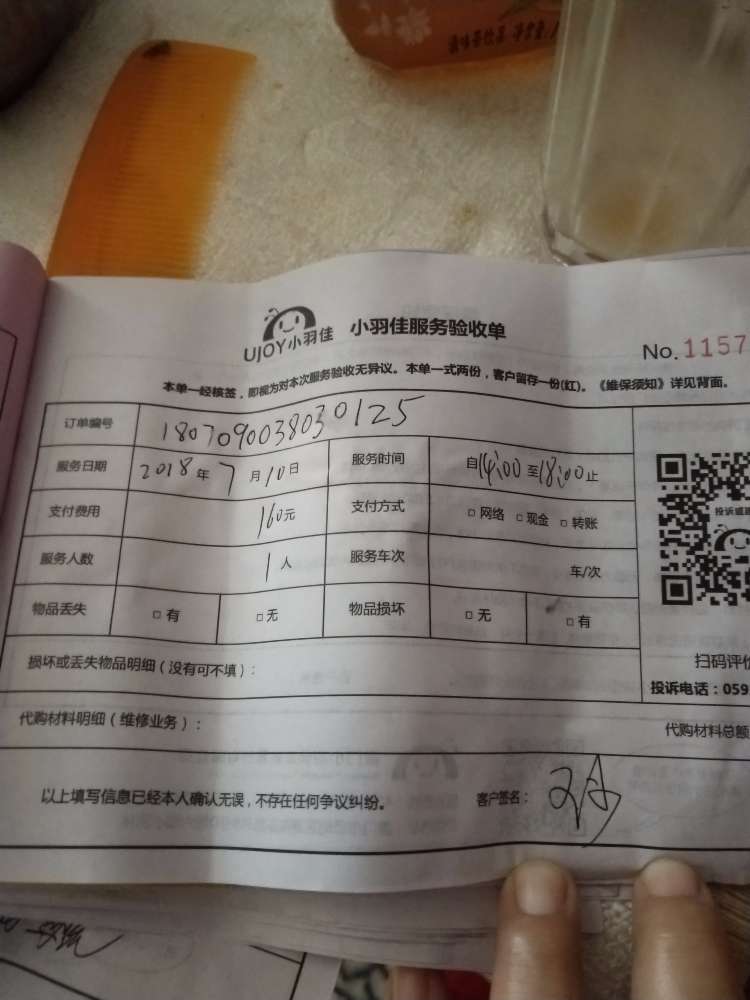 UJOY小羽佳 小羽佳服务验收单
No.1157
本单一经核签，即视为对本次服务验收无异议。本单一式两份，客户留存一份(红)。《维保须知》详见背面。
订单编号 1807090038030125
服务日期 2018年7月10日 服务时间 自14:00至18:00止
支付费用 160元 支付方式 □网络 □现金 □转账
服务人数 1人 服务车次 车/次
物品丢失 □有 □无 物品损坏 □无 □有
损坏或丢失物品明细（没有可不填）：
扫码评价
投诉电话：059
代购材料明细（维修业务）： 代购材料总额
以上填写信息已经本人确认无误，不存在任何争议纠纷。 客户签名：